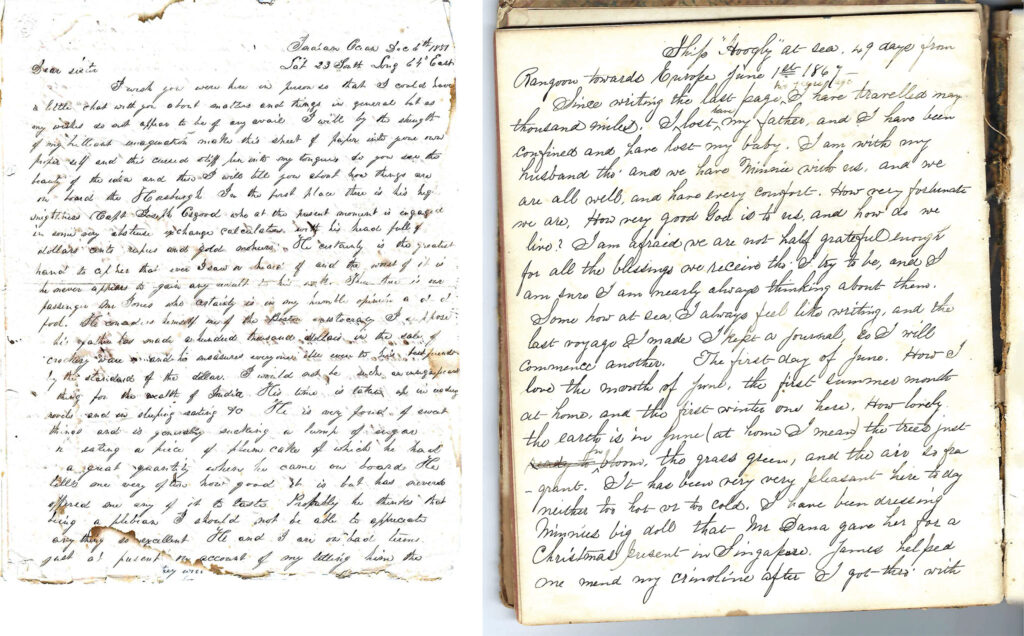 Indian Ocean Dec 6th 1857
Lat 23 South Long 64 East
Dear sister
I wish you were here in person so that I could have
a little chat with you about matters and things in general but as
my wishes do not appear to be of any avail I will by the strength
of my brilliant imagination make this sheet of paper into your own
proper self and this cursed stiff pen into my tongue do you see the
beauty of the idea and then I will tell you about how things are
on board the In the first place there is his high
mightiness Capt Joseph Osgood who at the present moment is engaged
in some very abstruse exchange calculation with his head full of
dollars cents rupees and gold mohurs. He certainly is the greatest
hand to cipher that ever I saw or heard of and the worst of it is
he never appears to gain any result to his Then there is our
passenger Mr Jones who certainly is in my humble opinion a
fool. He considers himself one of the Boston aristocracy I suppose
his father has made a hundred thousand dollars in the sale of
crockery ware and he measures everyone else even to his
by the standard of the dollar. I would not be such an
thing for the wealth of India His time is taken up in reading
novels and in sleeping eating &c He is very fond of sweet
things and is generally sucking a lump of sugar
or eating a piece of plum cake of which he had
a great quantity when he came on board He
tells me very often how good it is but has never
offered me any of it to taste Probably he thinks that
being a plebian I should not be able to appreciate
any thing so excellent He and I are on bad terms
just at present on account of my telling him the
Ship "Hoogly" at sea. 49 days from
Rangoon towards Europe June 1st 1867
Since writing the last page, I have travelled many
thousand miles. I lost my father, and I have been
confined and have lost my baby. I am with my
husband tho' and we have Minnie with us, and we
are all well, and have every comfort. How very fortunate
we are, How very good God is to us, and how do we
live? I am afraid we are not half grateful enough
for all the blessings we receive tho' I try to be, and I
am sure I am nearly always thinking about them.
Some how at sea, I always feel like writing, and the
last voyage I made I kept a journal, so I will
commence another. The first day of June. How I
love the month of June, the first summer month
at home, and the first winter one here, How lovely
the earth is in June (at home I mean) the trees just
ready to in bloom, the grass green, and the air so fra
-grant. It has been very very pleasant here to day
neither too hot or too cold. I have been dressing
Minnies big doll that Mr Dana gave her for a
Christmas present in Singapore. James helped
me mend my crinoline after I got thro' with